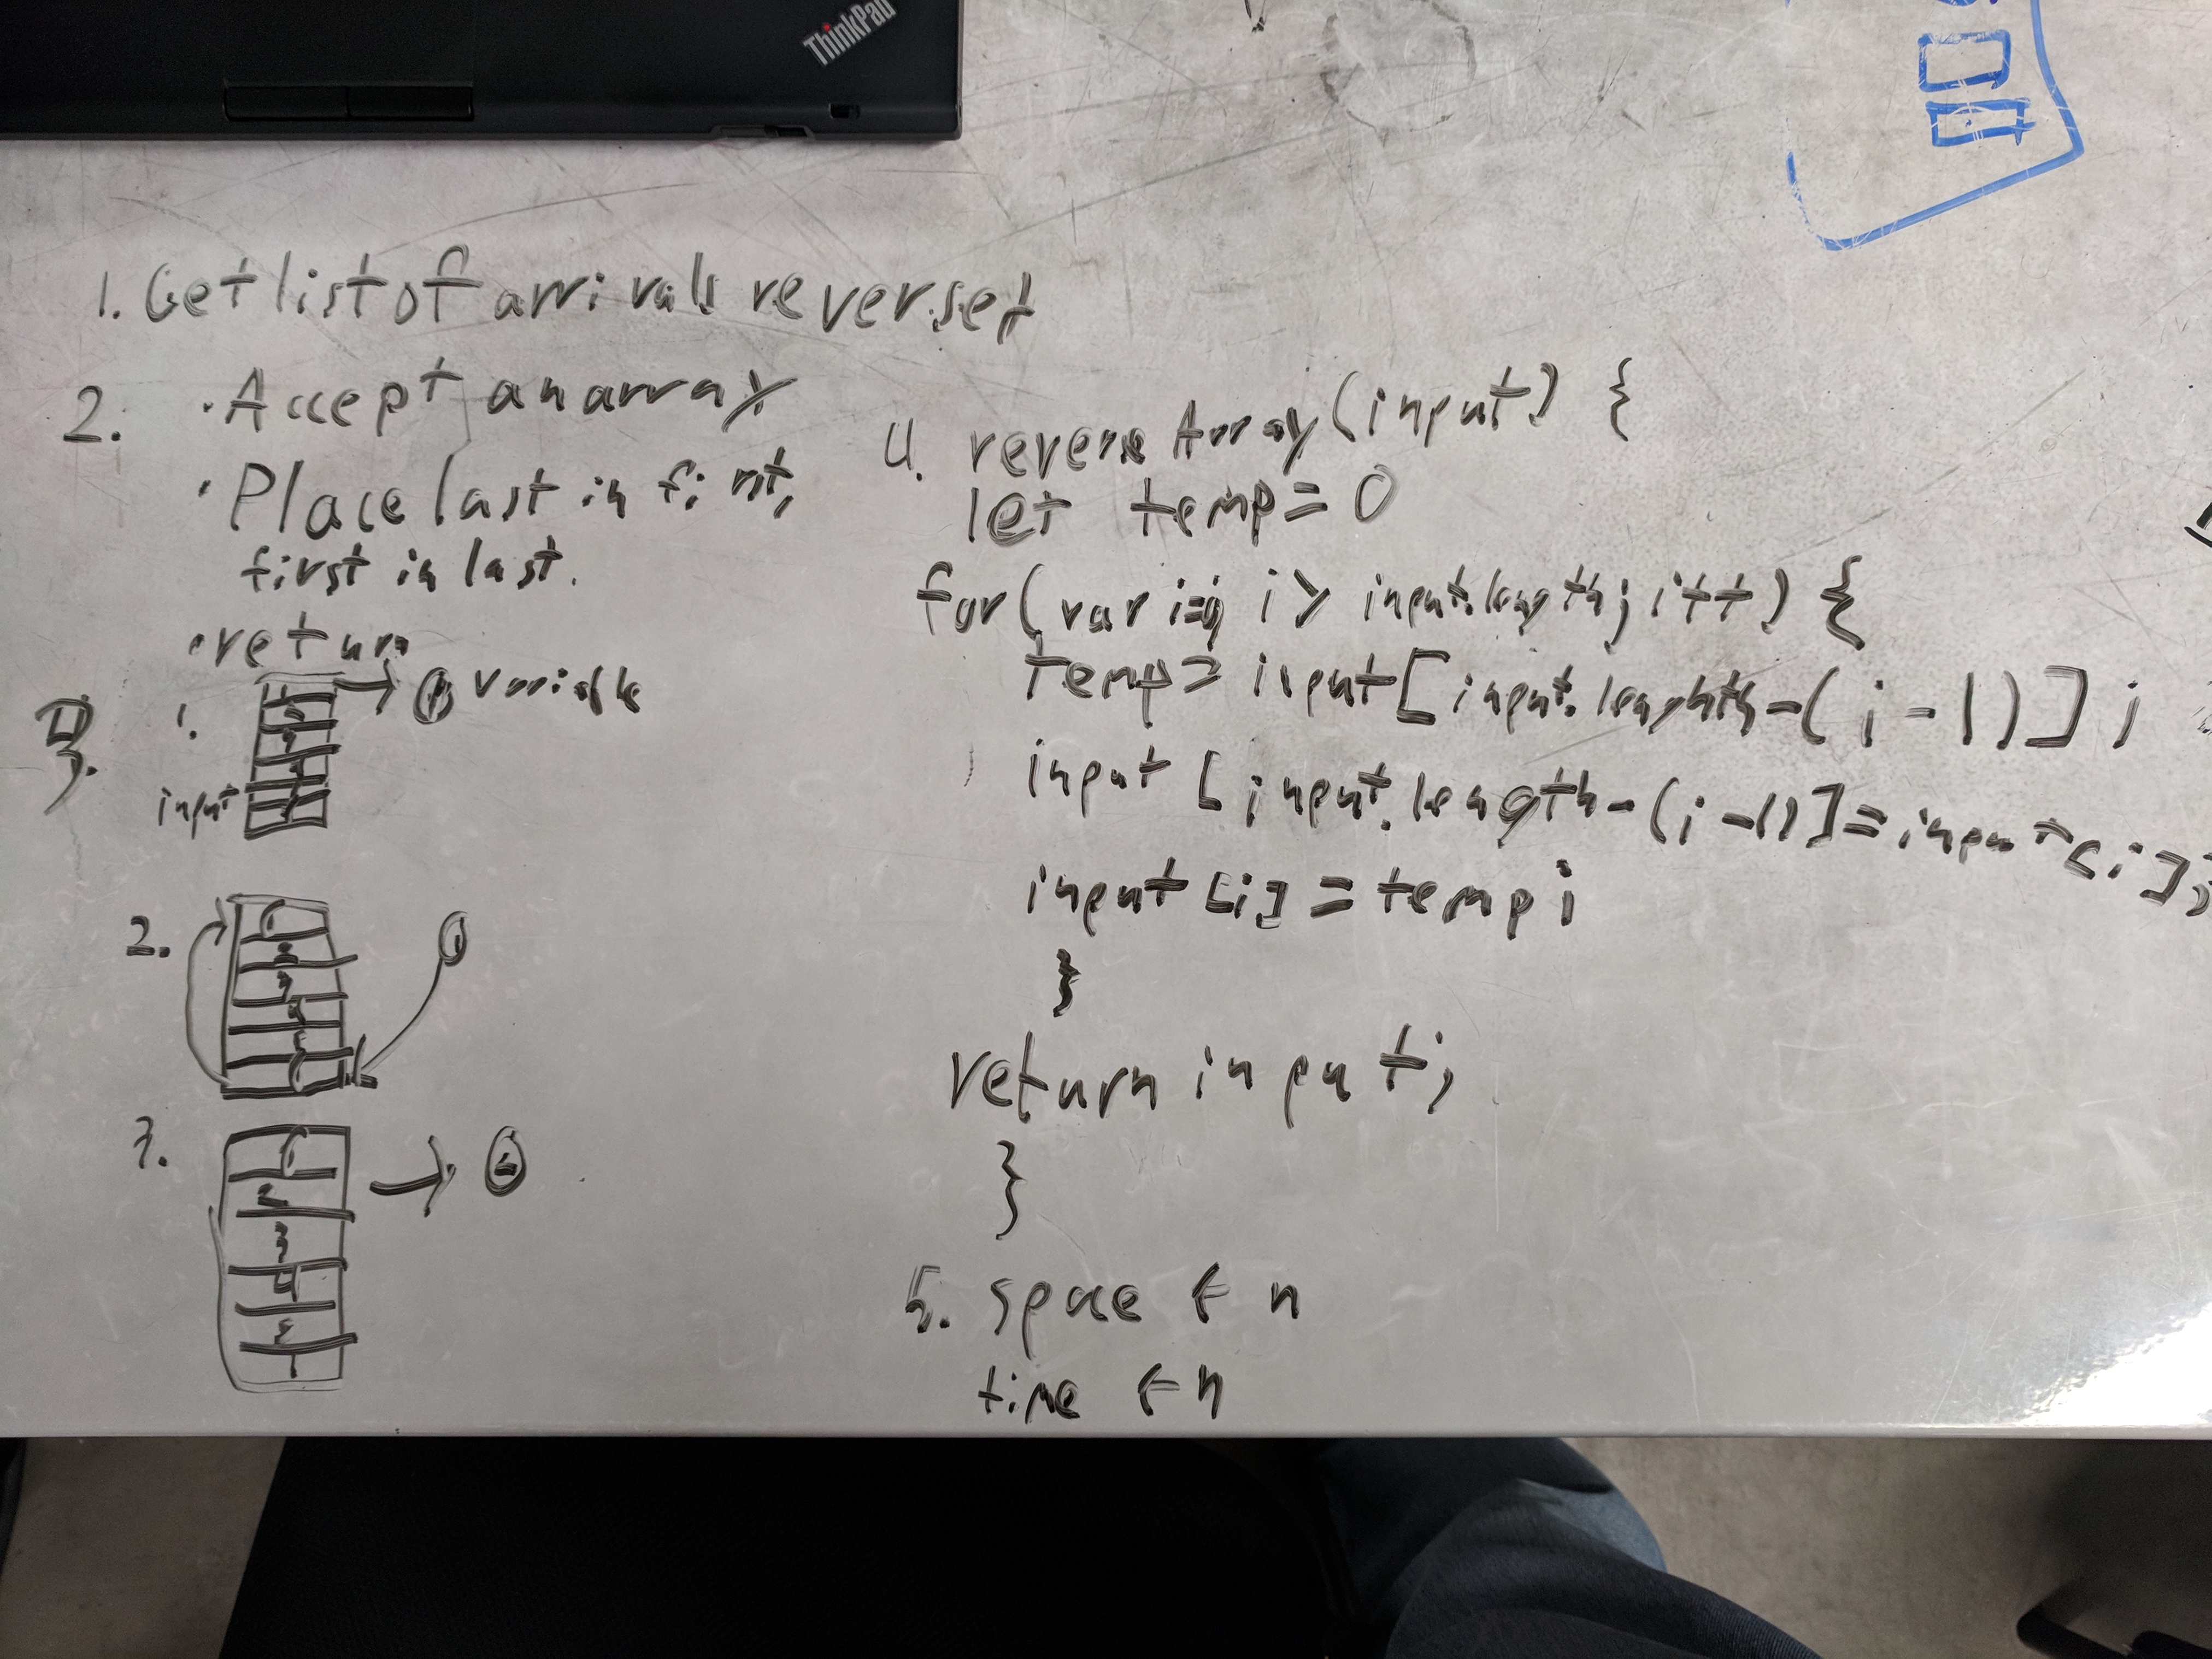 ThinkPad
1. Get list of arrivals reverset
2. · Accept an array
· Place last in first,
first in last.
· return
3.
1. → 1 variable
input
2.
1
3. → 2
4. reverseArray(input) {
let temp = 0
for(var i=0; i > input.length; i++) {
temp = input[input.lenghth-(i-1)];
input [input.length-(i-1)] = input[i];
input [i] = temp;
}
return input;
}
5. space ← n
time ← n